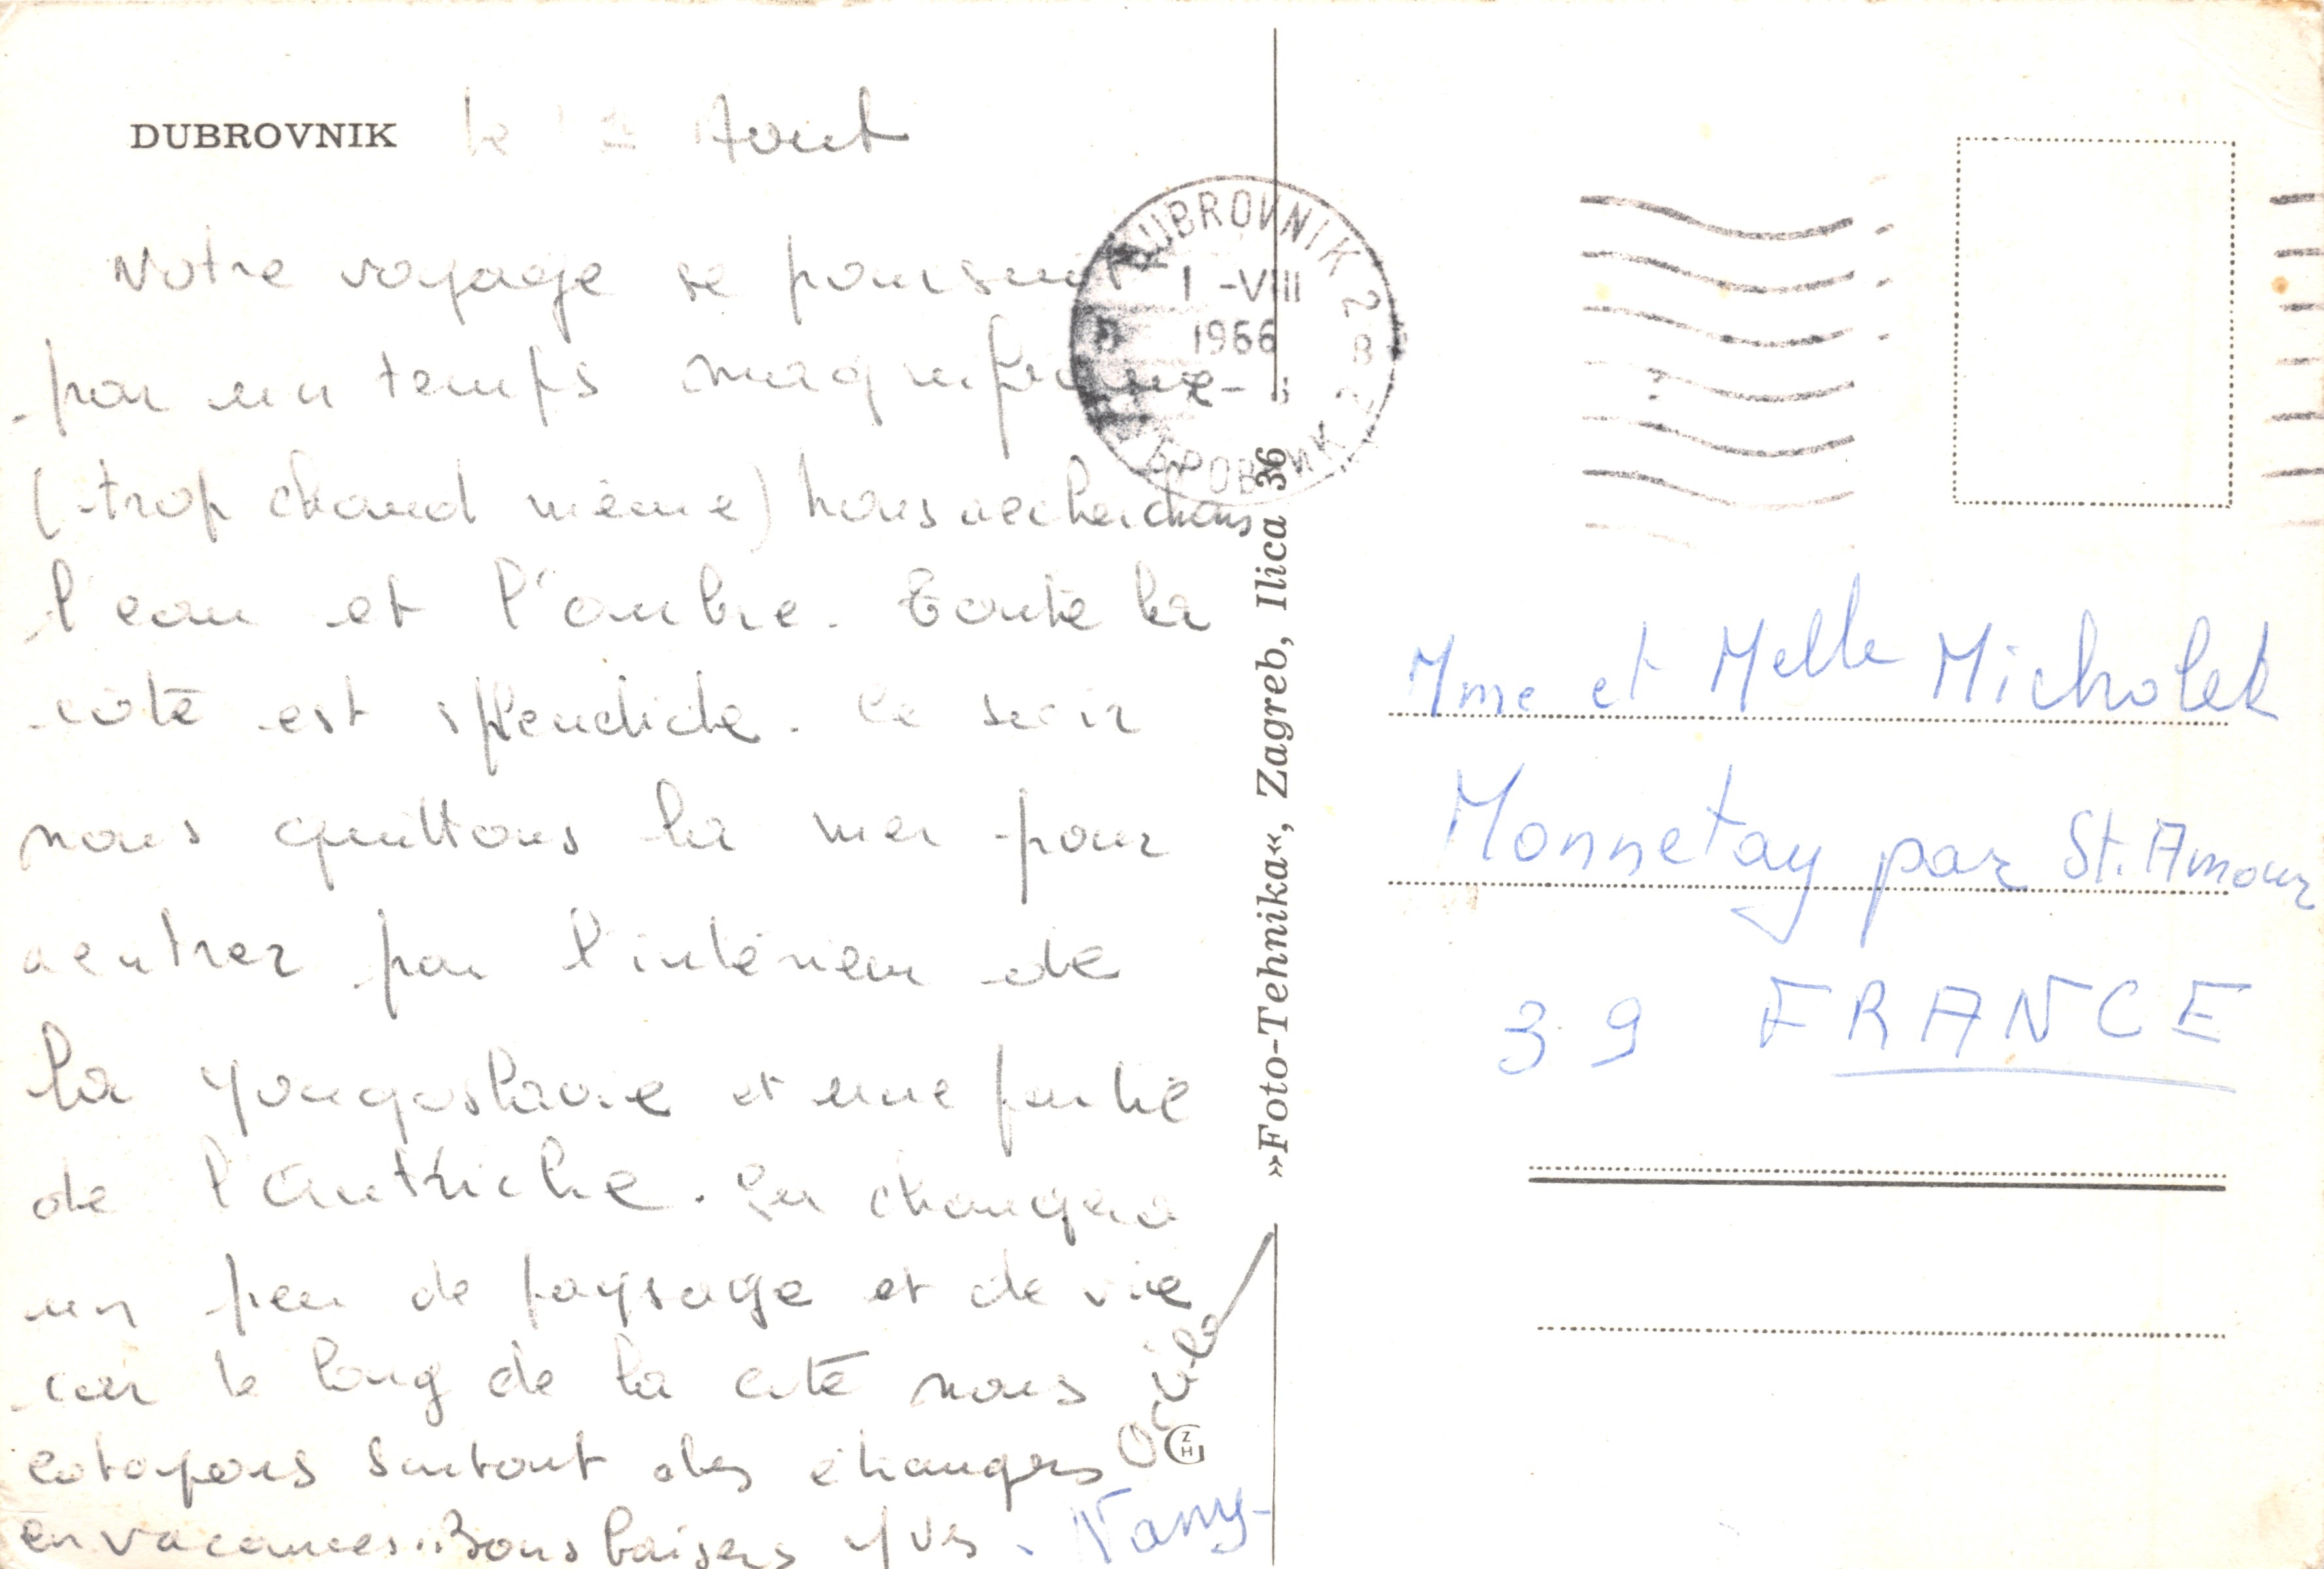 DUBROVNIK le Aout
Notre voyage se poursuit
par un temps magnifique
(trop chaud même) nous recherchons
l'eau et l'ombre. Toute la
côte est splendide. Ce soir
nous quittons la mer pour
rentrer par l'intérieur de
la Yougoslavie et une partie
de l'Autriche. Ça changera
un peu de paysage et de vie
car le long de la côte nous
cotoyons surtout des étrangers
en vacances.. Bons baisers Yves. Nany
ZH
DUBROVNIK 2
1-VIII
1966
»Foto-Tehnika«, Zagreb, Ilica 36
Mme et Melle Micholet
Monnetay par St. Amour
39 FRANCE